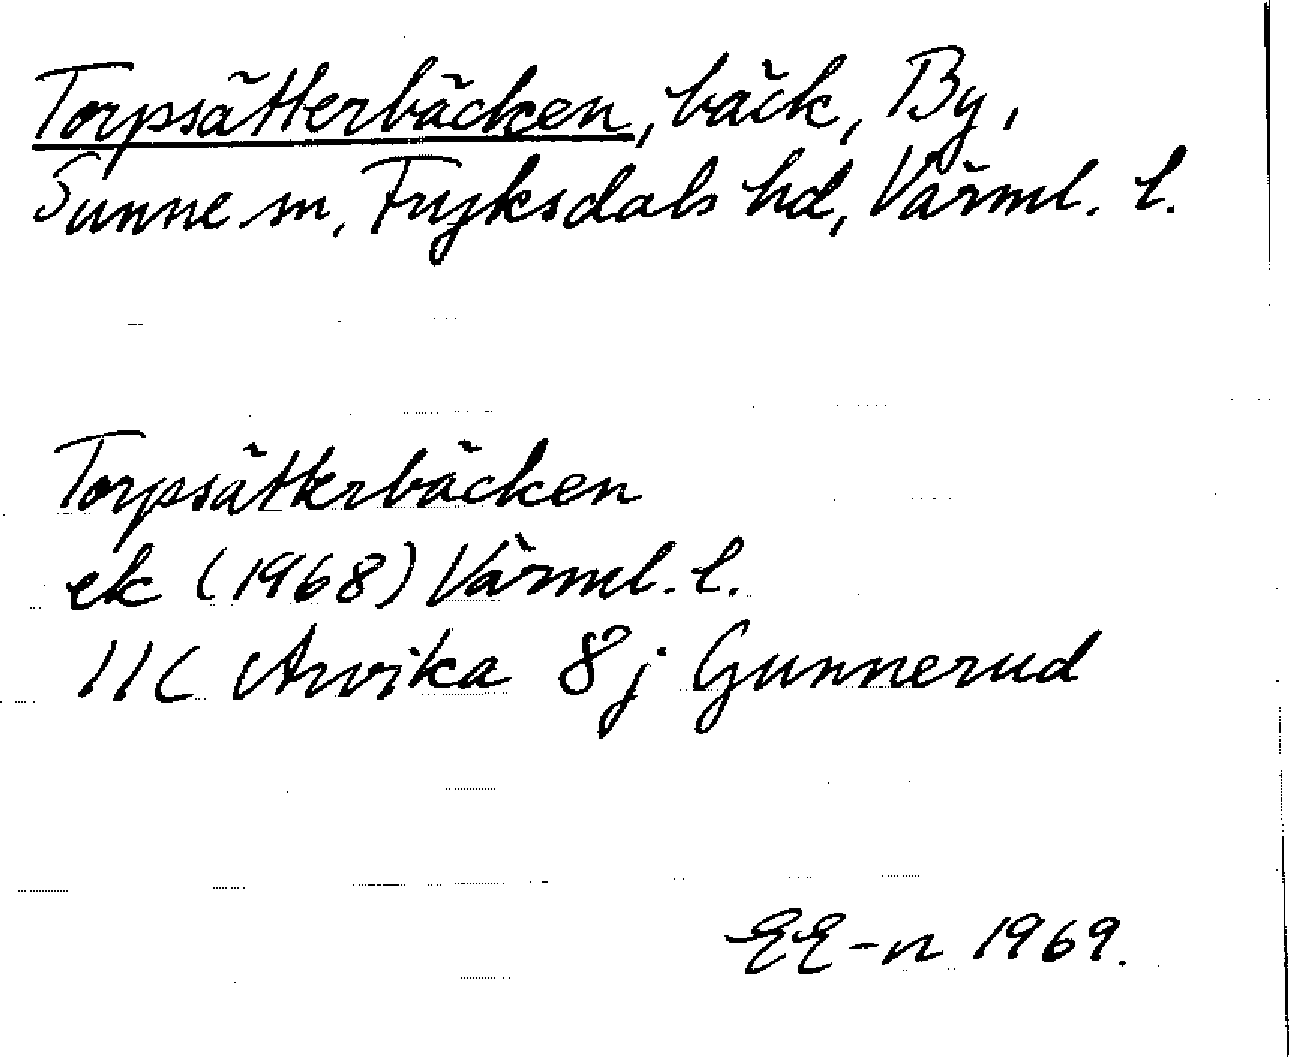 Torpsätterbäcken, bäck, By,
Sunne sn, Fryksdals hd, Värml. l.
Torpsätterbäcken
ek (1968) Värml. l.
11C Arvika 8j Gunnerud
EE-n 1969.